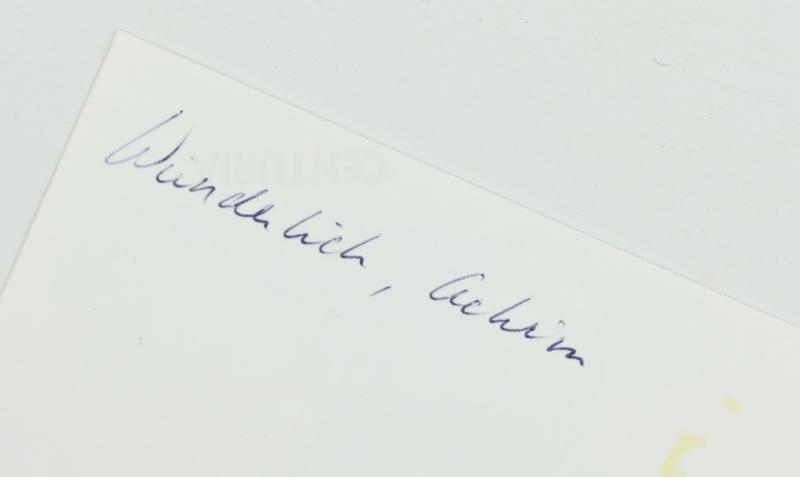 Wunderlich, Achim
CENTURIA